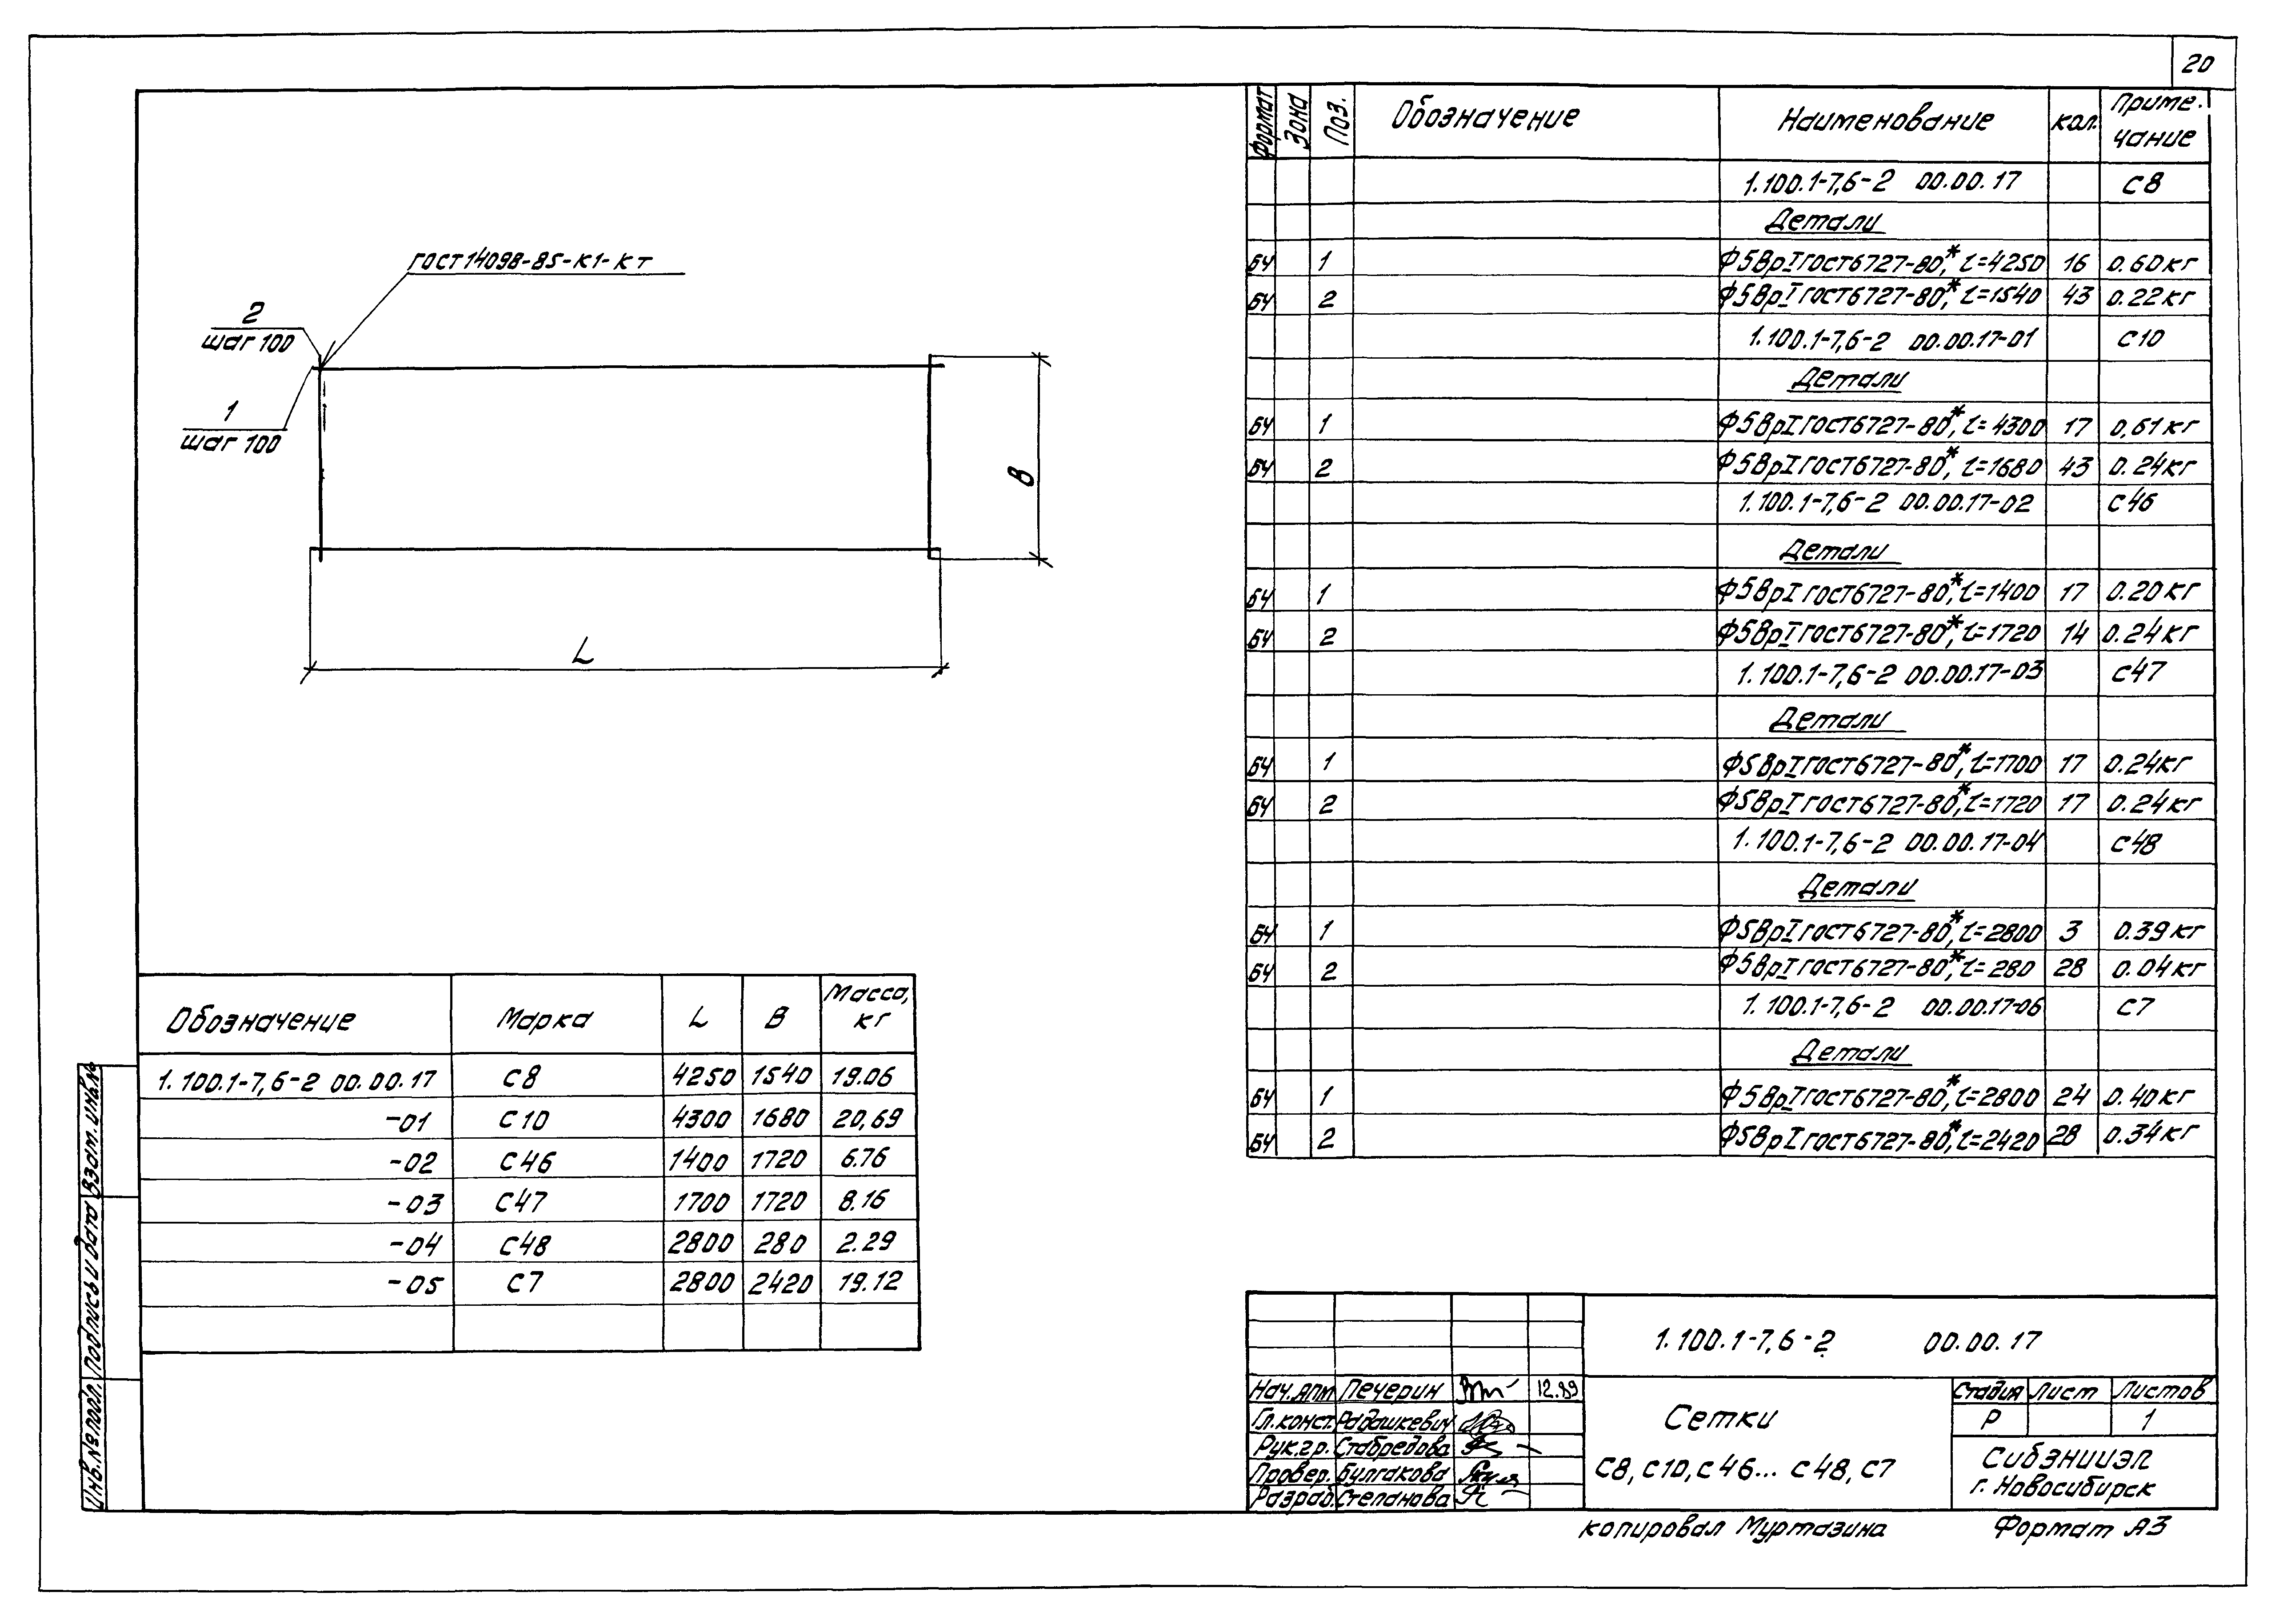 20
ГОСТ 14098-85-К1-Кт
2
шаг 100
1
шаг 100
B
L
Формат Зона Поз. Обозначение Наименование кол. Приме-
чание
1.100.1-7,6-2 00.00.17 С8
Детали
БЧ 1 Ф5ВрI ГОСТ 6727-80*, l=4250 16 0.60кг
БЧ 2 Ф5ВрI ГОСТ 6727-80*, l=1540 43 0.22кг
1.100.1-7,6-2 00.00.17-01 С10
Детали
БЧ 1 Ф5ВрI ГОСТ 6727-80*, l=4300 17 0,61кг
БЧ 2 Ф5ВрI ГОСТ 6727-80*, l=1680 43 0.24кг
1.100.1-7,6-2 00.00.17-02 С46
Детали
БЧ 1 Ф5ВрI ГОСТ 6727-80*, l=1400 17 0.20кг
БЧ 2 Ф5ВрI ГОСТ 6727-80*, l=1720 14 0.24кг
1.100.1-7,6-2 00.00.17-03 С47
Детали
БЧ 1 Ф5ВрI ГОСТ 6727-80*, l=1700 17 0.24кг
БЧ 2 Ф5ВрI ГОСТ 6727-80*, l=1720 17 0.24кг
1.100.1-7,6-2 00.00.17-04 С48
Детали
БЧ 1 Ф5ВрI ГОСТ 6727-80*, l=2800 3 0.39кг
БЧ 2 Ф5ВрI ГОСТ 6727-80*, l=280 28 0.04кг
1.100.1-7,6-2 00.00.17-06 С7
Детали
БЧ 1 Ф5ВрI ГОСТ 6727-80*, l=2800 24 0.40кг
БЧ 2 Ф5ВрI ГОСТ 6727-80*, l=2420 28 0.34кг
Обозначение Марка L B Масса,
кг
1.100.1-7,6-2 00.00.17 С8 4250 1540 19.06
-01 С10 4300 1680 20,69
-02 С46 1400 1720 6.76
-03 С47 1700 1720 8.16
-04 С48 2800 280 2.29
-05 С7 2800 2420 19.12
Инв.№подл. Подпись и дата Взам.инв.№
1.100.1-7,6-2 00.00.17
Нач.АПМ Печерин 12.89
Гл.конст. Радашкевич
Рук.гр. Стабредова
Провер. Булгакова
Разраб. Степанова
Сетки
С8, С10, С46... С48, С7
Стадия Лист Листов
Р 1
СибЗНИИЭП
г. Новосибирск
копировал Муртазина Формат А3